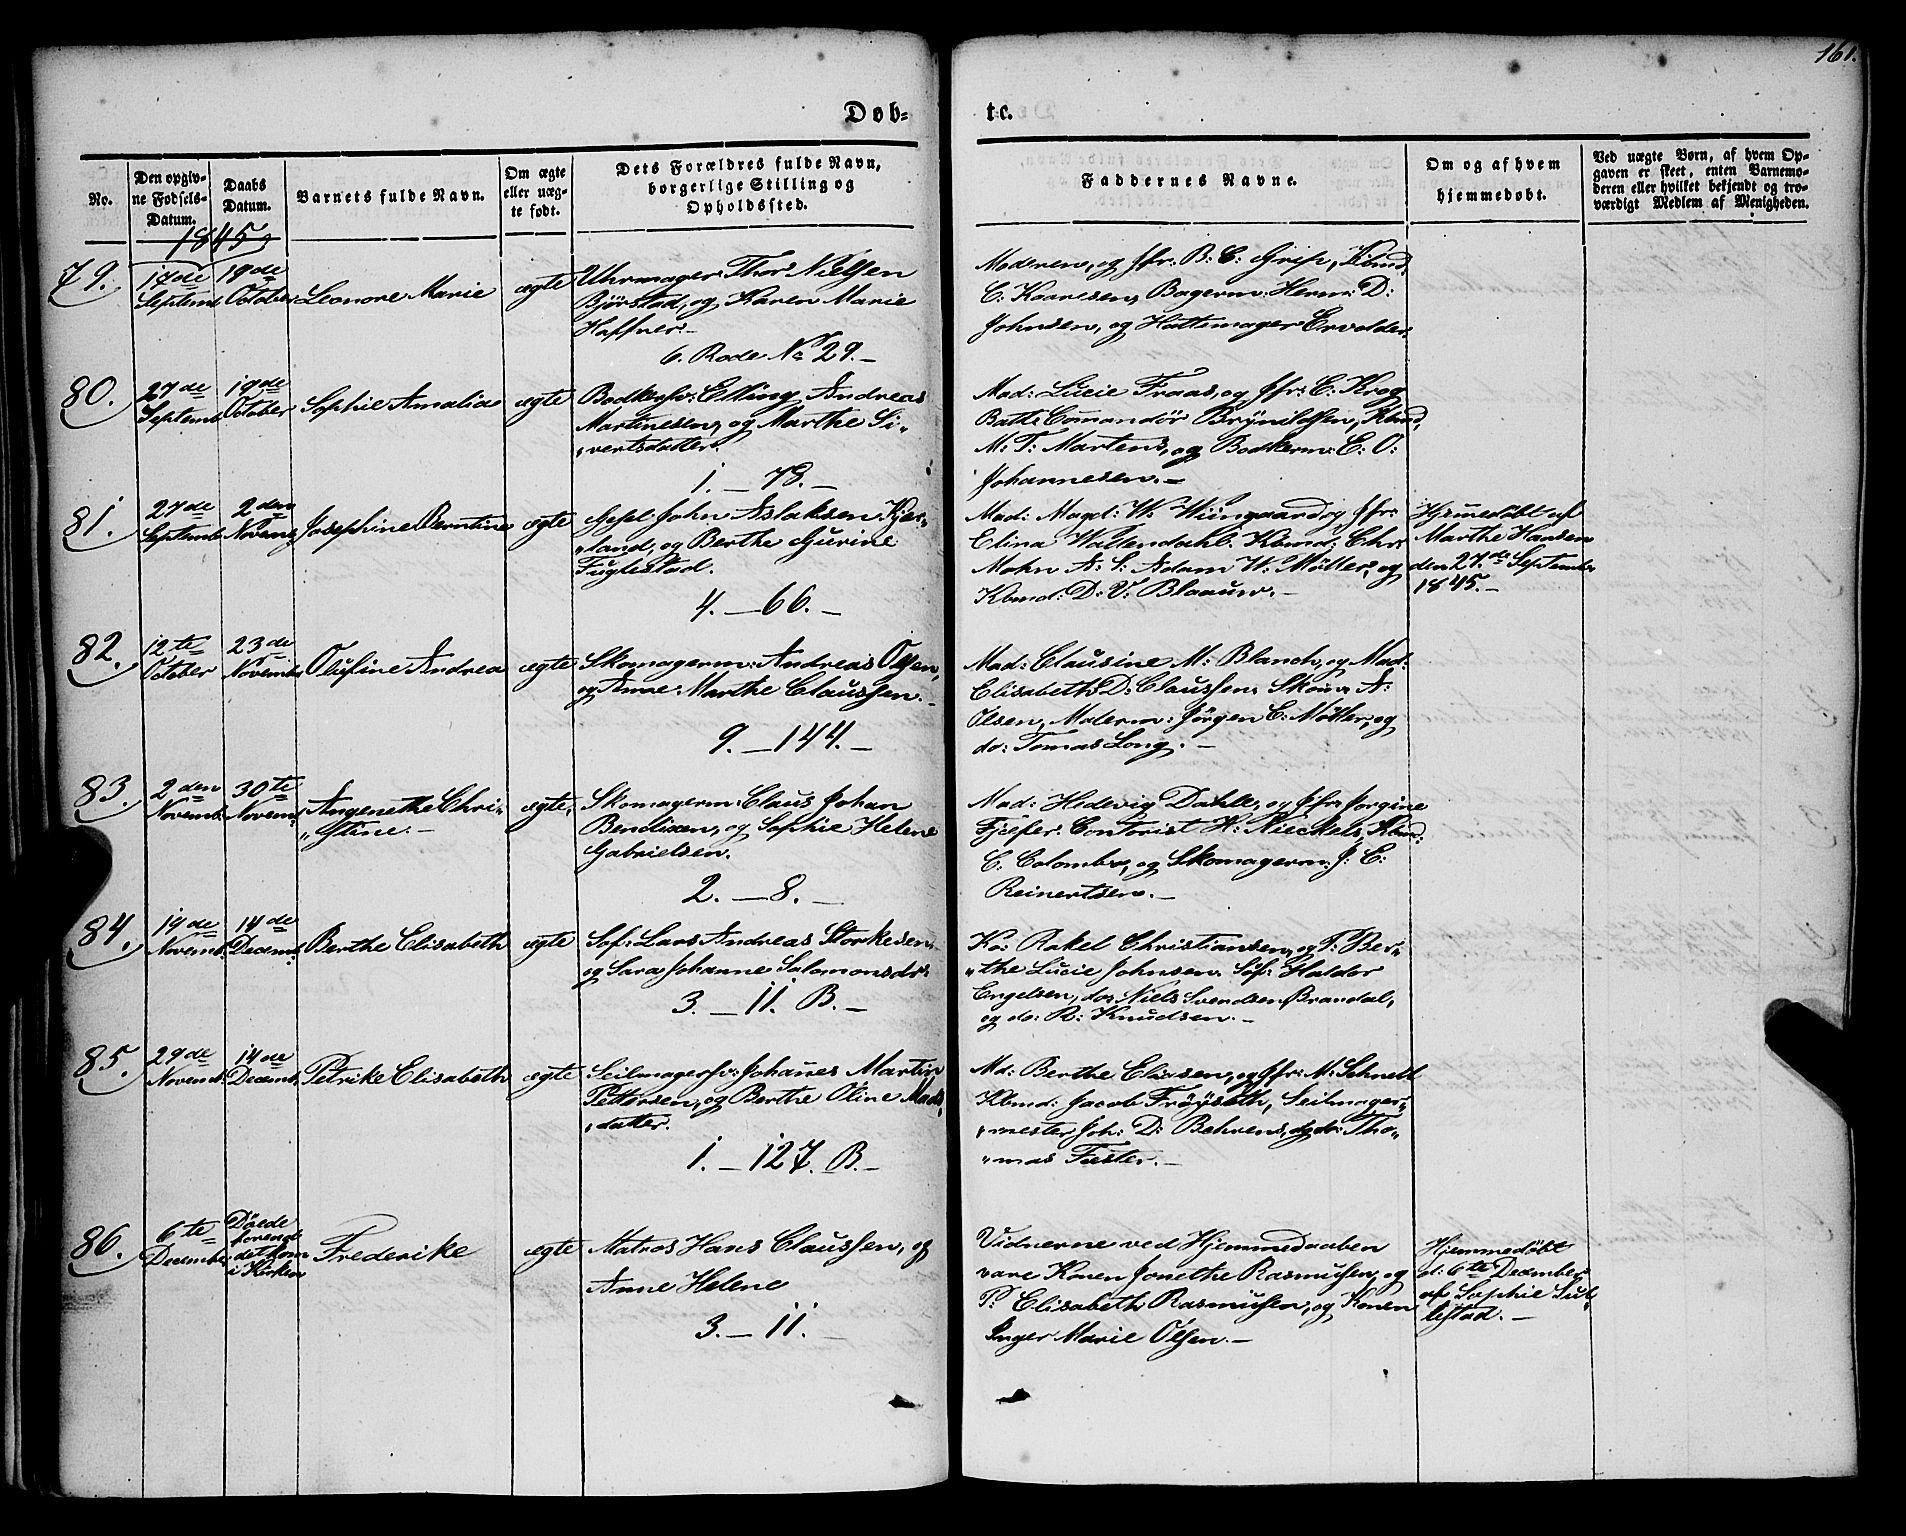 161.
Døb=
te.
No.
Den opgiv-
ne Fødsels-
Datum.
Daabs
Datum.
Barnets fulde Navn.
Om ægte
eller uæg-
te født.
Dets Forældres fulde Navn,
borgerlige Stilling og
Opholdssted.
Faddernes Navne.
Om og af hvem
hjemmedøbt.
Ved uægte Børn, af hvem Op-
gaven er skeet, enten Barnemo-
deren eller hvilket bekjendt og tro-
værdigt Medlem af Menigheden.
1845
79.
17de
Septemb
19de
October
Leonore Marie
ægte
Uhrmager Thor Nielsen
Bjørstad, og Karen Marie
Haffner.
6. Rode No 29.
Moderen, og Jfr: B: C: Grip, Kbmd
C. Kaaresen, Bagerm: Herm: D:
Johnsen, og Hattemager Ervolder
80.
27de
Septemb
19de
October
Sophie Amalia
ægte
Bødkersv: Elling Andreas
Martinesen, og Marthe Si-
vertsdatter.
1. — 78. —
Mad: Lucie Fraas, og Jfr: C: Krog
Batt: Comandør Brynildsen, Kbmd
M: T: Martens, og Bødkerm: C: O:
Johannesen. —
81.
27de
Septemb
2den
Novemb
Josephine Berntine
ægte
Gesel John Aslaksen Kjer-
land, og Berthe Gurine
Fuglestad.
4. — 66. —
Mad: Magd: W: Wiingaard, og Jfr:
Elina Waltendahl. Kbmd: Chr:
Mohn A: S: Adam W: Møller, og
Kbmd: D: V: Blaauw. —
Hjemedøbt af
Marthe Hansen
den 27de Septemb
1845. —
82.
12te
October
23de
Novemb
Olufine Andrea
ægte
Skomagerm: Andreas Olsen,
og Anne Marthe Claussen. —
9. — 144. —
Mad: Clausine M: Blanch, og Mad:
Elisabeth D: Claussen, Skom: A:
Olsen, Malerm: Jørgen C: Møller, og
do: Tomas Long. —
83.
2den
Novemb
30te
Novemb
Angenethe Chri-
stine. —
ægte.
Skomagerm: Claus Johan
Bendixen, og Sophie Helene
Gabrielsen.
2. — 8. —
Mad: Hedevig Dahll, og Jfr: Jorgine
Fjelser. Contorist H: Nieckels, Kbmd:
C. Colombu, og Skomagerm: J: C:
Reinertsen. —
84.
19de
Novemb
14de
Decemb
Berthe Elisabeth
ægte
Søf: Lars Andreas Storkesen,
og Sara Johanne Salomonsdr:
3. — 11. B. —
Ko: Rakel Christiansen, og P: Ber-
the Lucie Johnsen. Søf: Haldor
Engelsen, do: Niels Svendsen Brandal,
og do: R: Knudsen. —
85.
29de
Novemb
14de
Decemb
Petrike Elisabeth
ægte
Seilmagersv: Johanes Martin
Pettersen, og Berthe Oline Mads-
datter.
1. — 127. B. —
Md: Berthe Clasen, og Jfr: M: Schnell
Kbmd: Jacob Frøyseth, Seilmager-
mester Joh: D: Behrens, og do: Tho-
mas Faster. —
86.
6te
December
Døede
forend
det kom
i Kirken
Frederike
ægte
Matros Hans Claussen, og
Anne Helene
3. — 11. —
Vidnerne ved Hjemmedaaben
vare Konen Jonethe Rasmussen, og
P: Elisabeth Rasmussen, og Konen
Inger Marie Olsen. —
Hjemmedøbt
d: 6te December
af Sophie Sul-
lestad. —